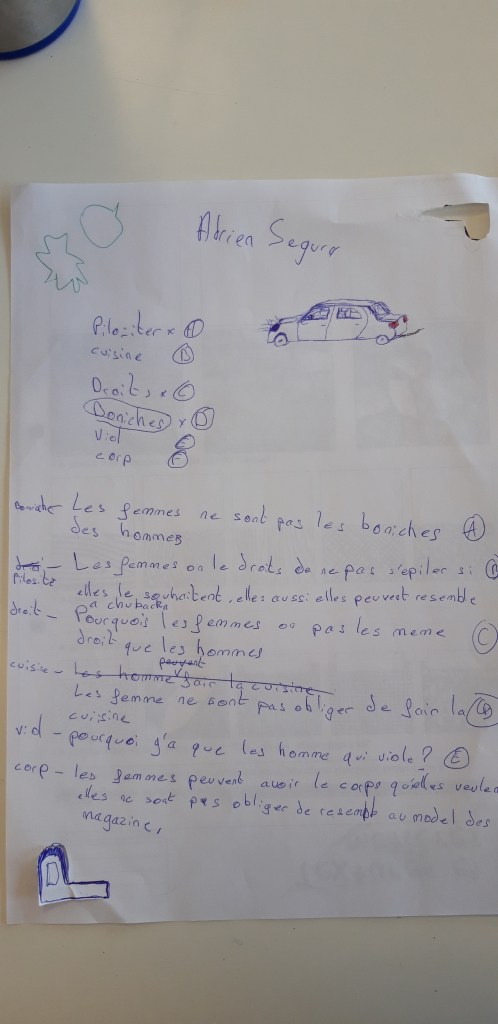 Adrien Segura
Pilositer x A
cuisine B
Droits x C
Boniches x D
Viol E
corp F
Boniche - Les femmes ne sont pas les boniches A
des hommes
droi - Les femmes on le droits de ne pas s'épiler si B
Pilosité
elles le souhaitent, elles aussi elles peuvent resemble
a chubacka
droit - Pourquois les femmes on pas les meme C
droit que les hommes
peuvent
cuisine - Les homme fair la cuisine
Les femme ne sont pas obliger de fair la D
cuisine
viol - pourquoi y'a que les homme qui viole ? E
corp - les femmes peuvent avoir le corps qu'elles veulen
elles ne sont pas obliger de resemb au model des
magazine,
D